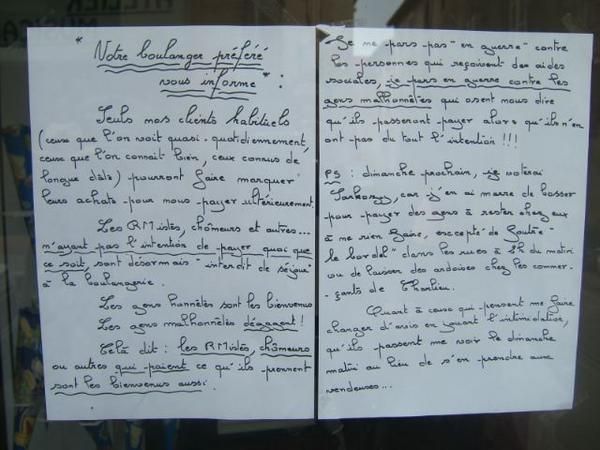 * Notre boulanger préféré
vous informe * :
Seuls nos clients habituels
(ceux que l'on voit quasi-quotidiennement,
ceux que l'on connait bien, ceux connus de
longue date) pourront faire marquer
leurs achats pour nous payer ultérieurement.
Les RMistes, chômeurs et autres...
n'ayant pas l'intention de payer quoi que
ce soit, sont désormais "interdit de séjour"
à la boulangerie.
Les gens honnêtes sont les bienvenus
Les gens malhonnêtes dégagent !
Celà dit : les RMistes, chômeurs
ou autres qui paient ce qu'ils prennent
sont les bienvenus aussi.
Je ne pars pas "en guerre" contre
les personnes qui reçoivent des aides
sociales, je pars en guerre contre les
gens malhonnêtes qui osent nous dire
qu'ils passeront payer alors qu'ils n'en
ont pas du tout l'intention !!!
PS : dimanche prochain, je voterai
Sarkozy, car j'en ai marre de bosser
pour payer des gens à rester chez eux
à ne rien faire, excepté de foutre
le bordel dans les rues à 2h du matin
ou de laisser des ardoises chez les commer-
-çants de Charlieu.
Quant à ceux qui pensent me faire
changer d'avis en jouant l'intimidation,
qu'ils passent me voir le dimanche
matin au lieu de s'en prendre aux
vendeuses...